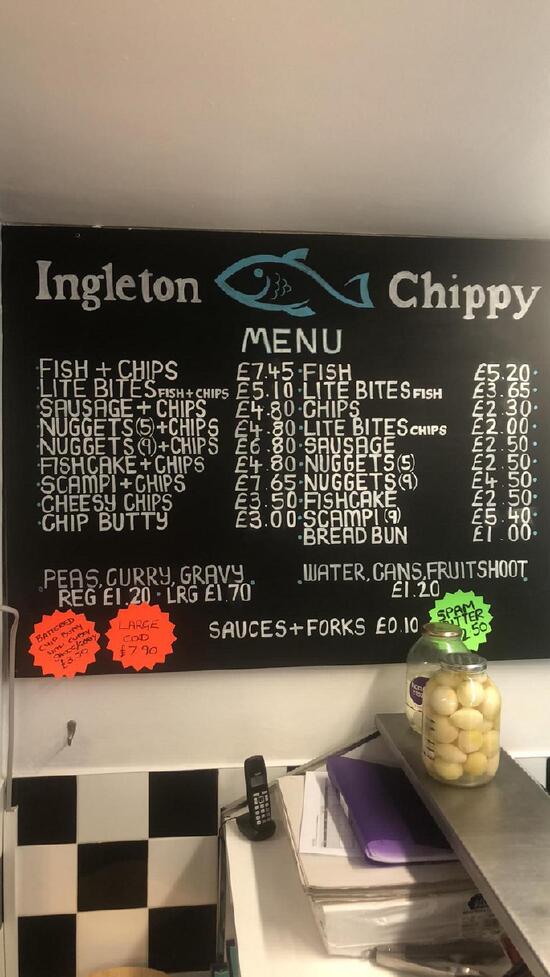 Ingleton Chippy
MENU
FISH + CHIPS £7.45
LITE BITES FISH + CHIPS £5.10
SAUSAGE + CHIPS £4.80
NUGGETS (5) + CHIPS £4.80
NUGGETS (9) + CHIPS £6.80
FISHCAKE + CHIPS £4.80
SCAMPI + CHIPS £7.65
CHEESY CHIPS £3.50
CHIP BUTTY £3.00
FISH £5.20
LITE BITES FISH £3.65
CHIPS £2.30
LITE BITES CHIPS £2.00
SAUSAGE £2.50
NUGGETS (5) £2.50
NUGGETS (9) £4.50
FISHCAKE £2.50
SCAMPI (9) £5.40
BREAD BUN £1.00
PEAS, CURRY, GRAVY
REG £1.20 · LRG £1.70
WATER, CANS, FRUITSHOOT
£1.20
SAUCES + FORKS £0.10
BATTERED
CHIP BUTTY
£3.50
LARGE
COD
£7.90
SPAM